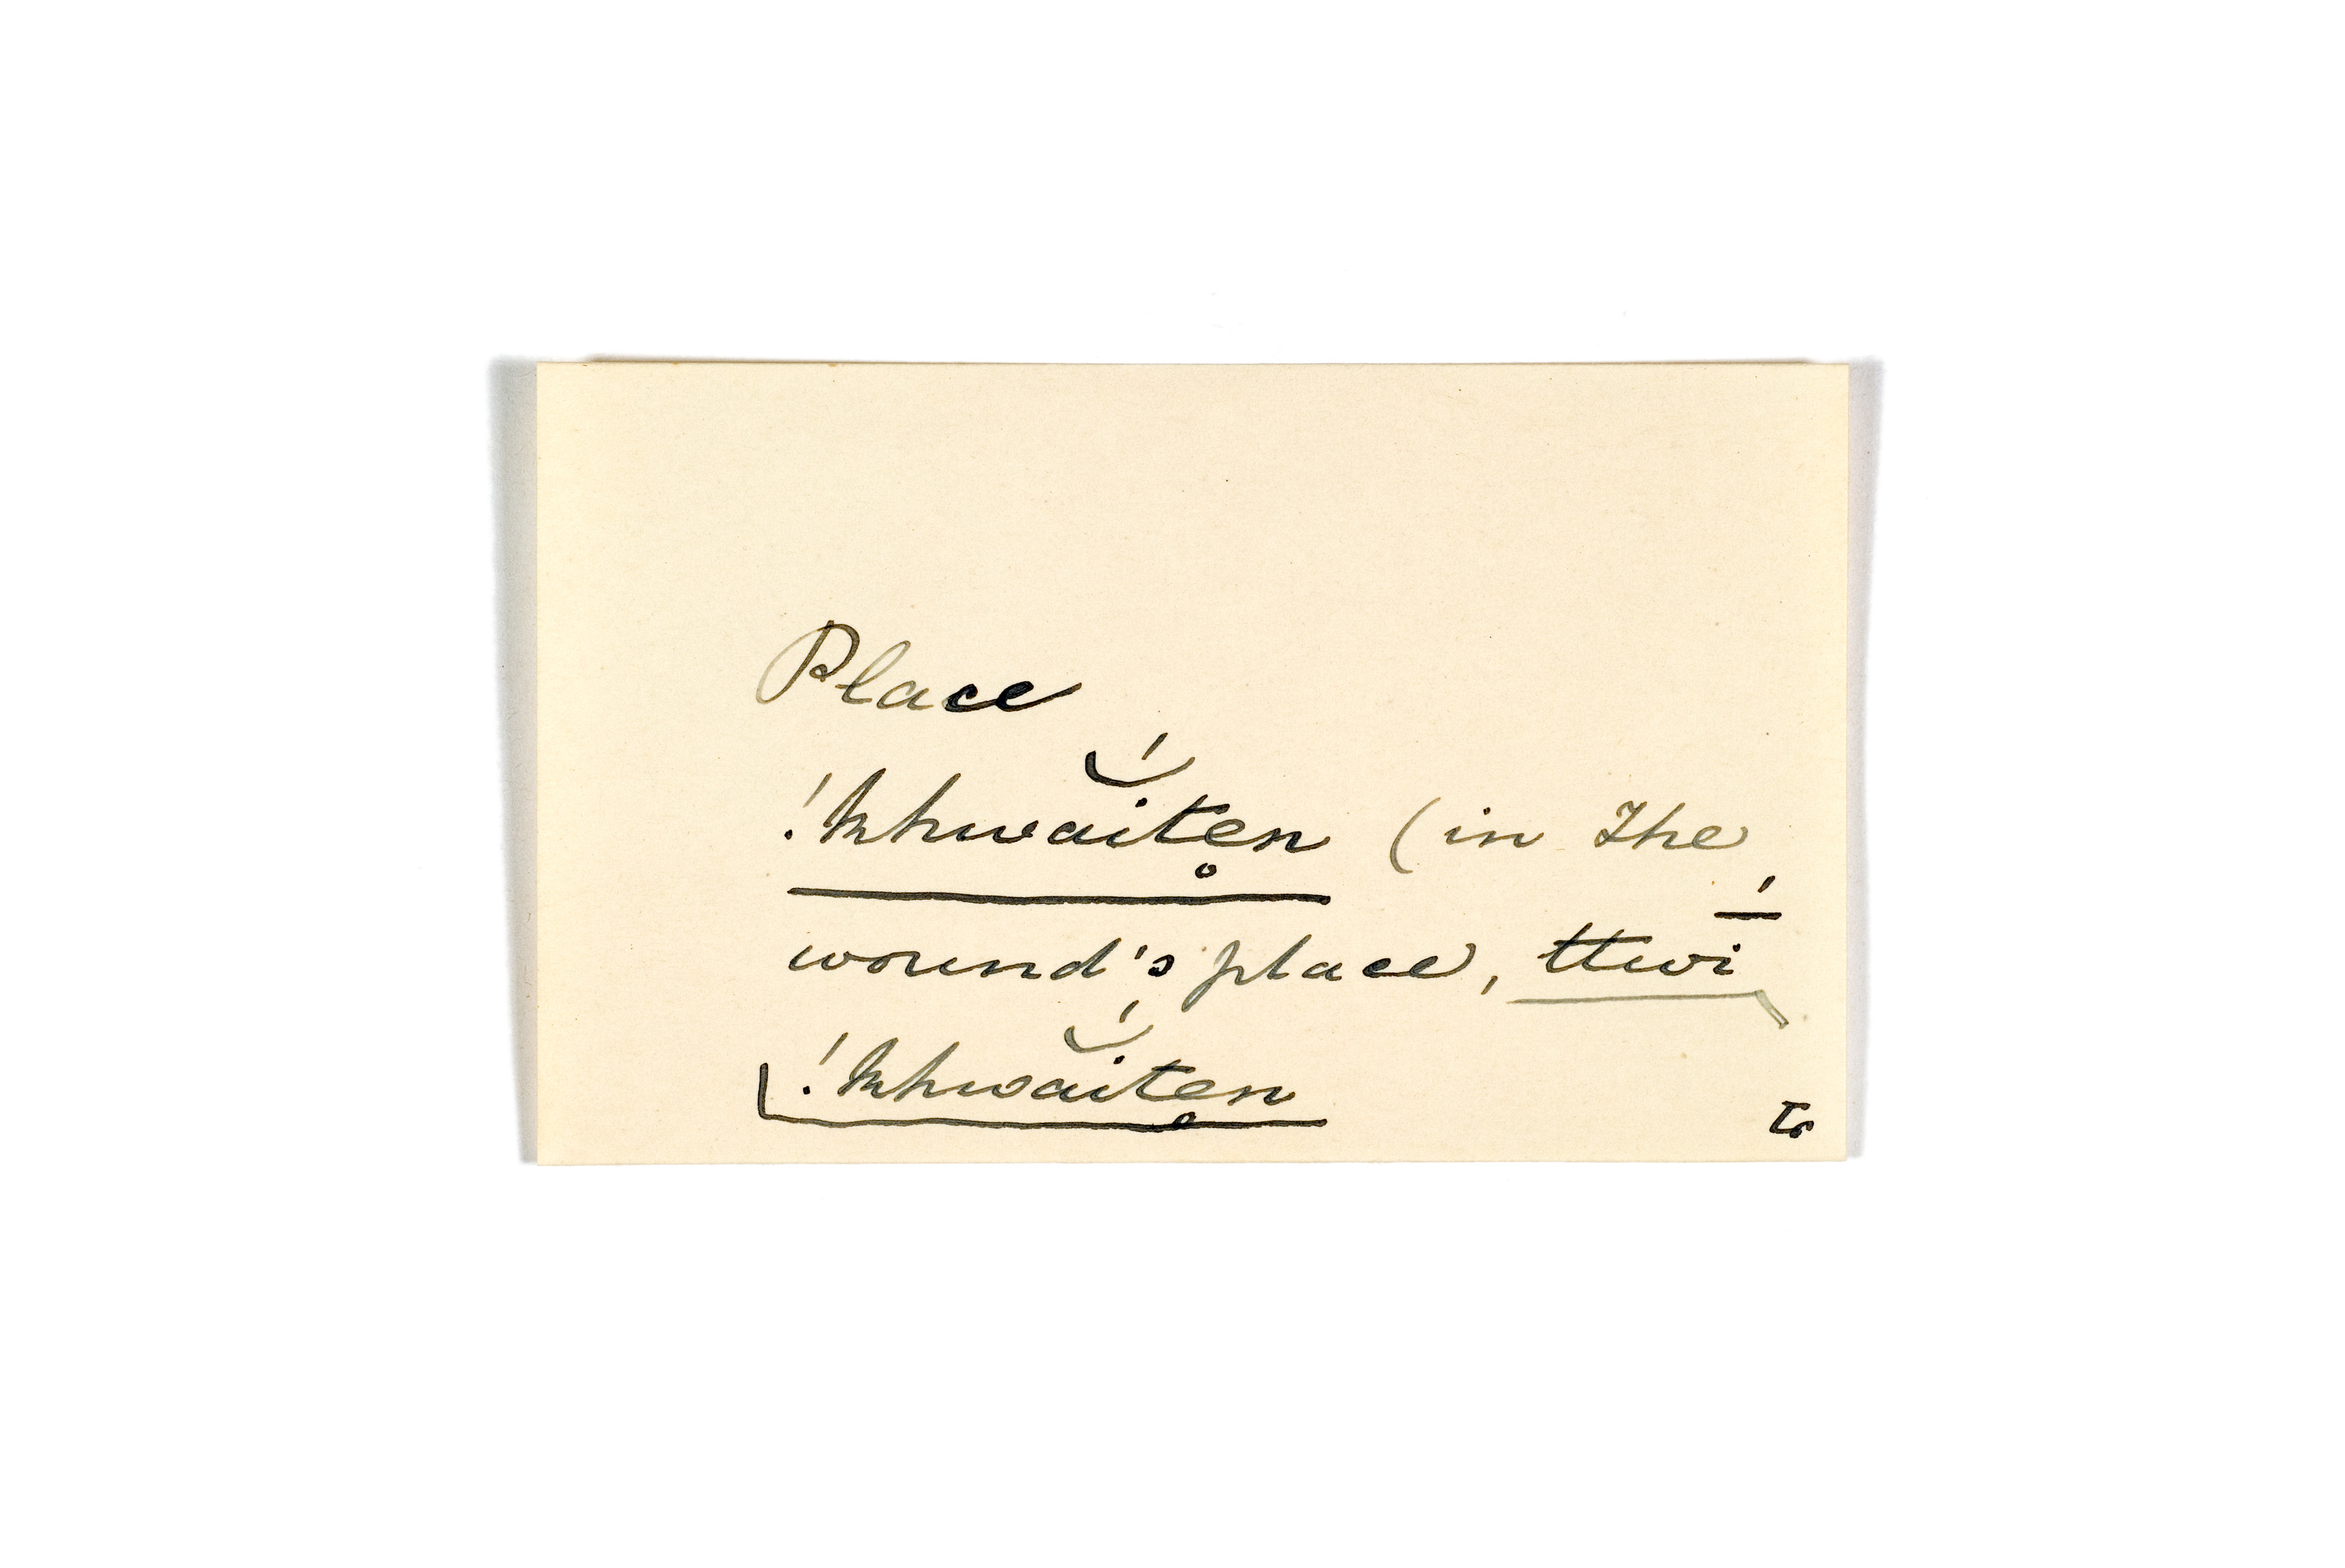 Place
!khwaĭ́teṇ̊ (in the
wound's place, ttwī́
!khwaĭ́teṇ̊